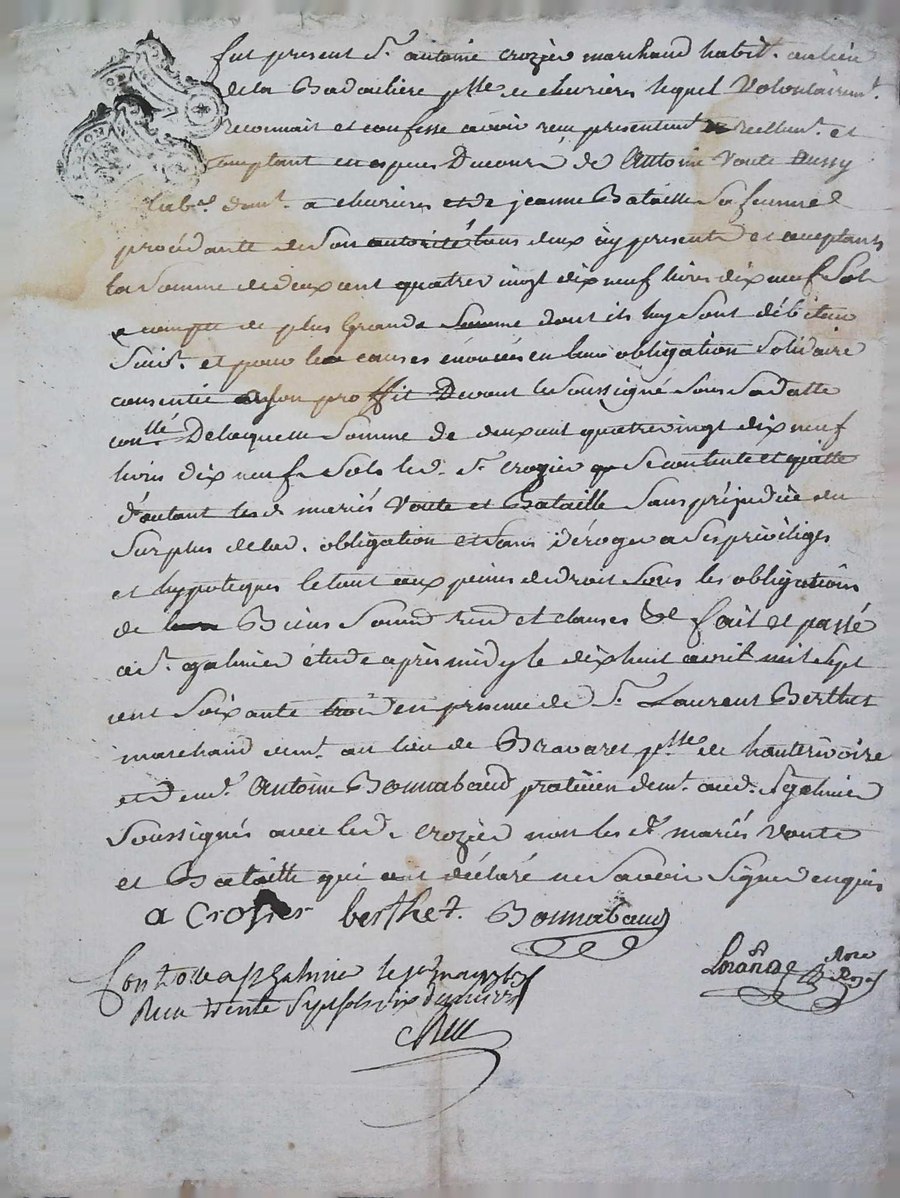 fut present Sr. antoine crozier marchand habitt. au lieu
de la Badouliere psse de chevrieres lequel Volontairemt.
reconnait et confesse avoir reçu presentemt reellemt. et
comptant en especes Ducours de Antoine Voute
labr. demt. a chevrieres et de jeanne Bataille Sa femme
procédante de Son autorité tous deux icy presents et acceptants
la Somme de deux cent quatre vingt dix neuf livres dix neuf Sols
a compte de plus Grande Somme dont ils luy Sont débiteurs
Suivt. et pour les causes énoncées en leur obligation Solidaire
consentie a son proffit Devant le Soussigné Sous Sa datte
conllé. De laquelle Somme de deux cent quatre vingt dix neuf
livres dix neuf Sols led. Sr. crozier Se contente et quitte
d'autant lesd. mariés Voute et Bataille Sans préjudice du
Surplus de lad. obligation et Sans Déroger a Ses privileges
et hypoteques le tout aux peines de droit Sous les obligations
de Biens Soumd rend et clauses &c fait et passé
a St. galmier étude après midy le dix huit avril mil Sept
cent Soixante trois en présence de Sr. Laurent Berthet
marchand demt. au lieu de Bravares psse de hauterivoire
et de me. Antoine Bonnabaud praticien demt. aud. St galmier
Soussignés avec led. crozier non lesd. mariés Voute
et Bataille qui ont déclaré ne Savoir Signer enquis
a Crosier berthet. Bonnabaud
Contolle a St Galmier le may 1763
Reçu trente Sept sols six deniers